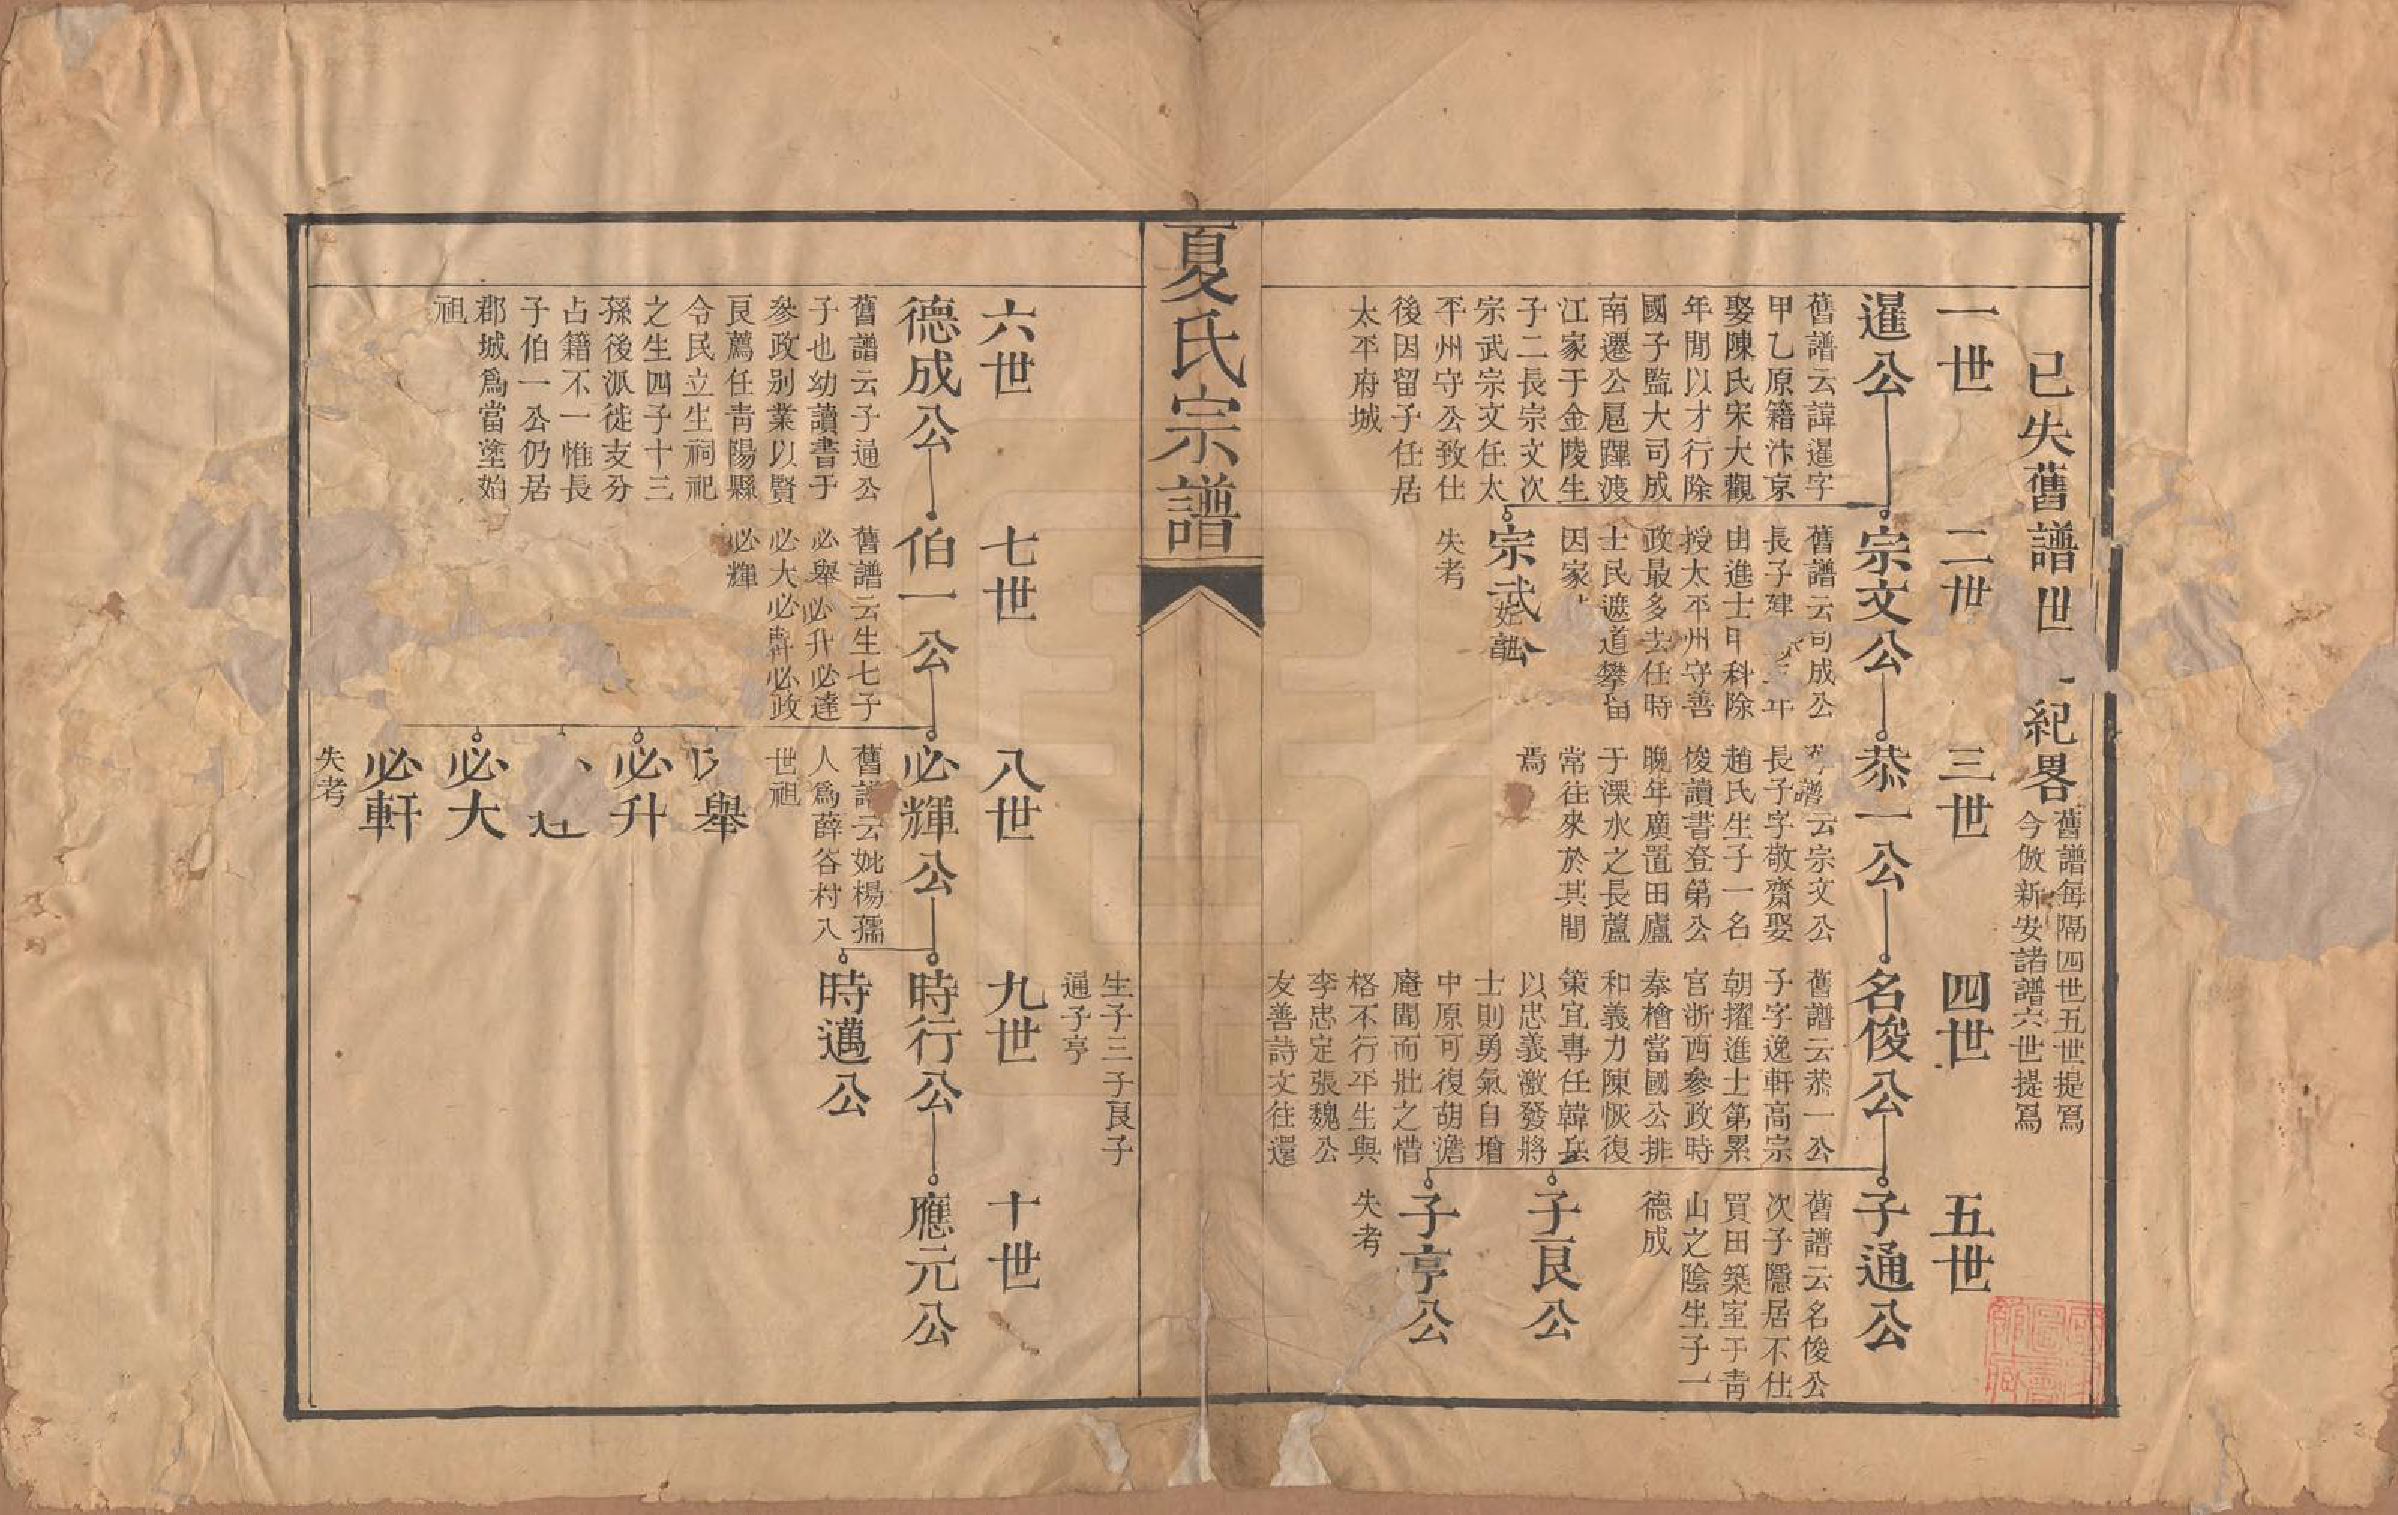 已失舊譜世 紀畧
舊譜每隔四世五世提寫
今倣新安諸譜六世提寫
一世
暹公
舊譜云諱暹字
甲乙原籍汴京
娶陳氏宋大觀
年間以才行除
國子監大司成
南遷公扈蹕渡
江家于金陵生
子二長宗文次
宗武宗文任太
平州守公致仕
後因留子任居
太平府城
二世
宗文公
舊譜云司成公
長子建 年
由進士甲科除
授太平州守善
政最多去任時
士民遮道攀留
因家
宗武公
失考
三世
恭一公
譜云宗文公
長子字敬齋娶
趙氏生子一名
俊讀書登第公
晚年廣置田廬
于溧水之長蘆
常往來於其間
焉
四世
名俊公
舊譜云恭一公
子字逸軒高宗
朝擢進士第累
官浙西參政時
秦檜當國公排
和義力陳恢復
策宜專任韓岳
以忠義激發將
士則勇氣自增
中原可復胡澹
庵聞而壯之惜
格不行平生與
李忠定張魏公
友善詩文往還
生子三子良子
通子亨
五世
子通公
舊譜云名俊公
次子隱居不仕
買田築室于青
山之陰生子一
德成
子良公
子亨公
失考
夏氏宗譜
六世
德成公
舊譜云子通公
子也幼讀書于
參政别業以賢
良薦任青陽縣
令民立生祠祀
之生四子十三
孫後派徙支分
占籍不一惟長
子伯一公仍居
郡城爲當塗始
祖
七世
伯一公
舊譜云生七子
必舉必升必達
必大必軒必政
必輝
八世
必輝公
舊譜云妣楊孺
人爲薛谷村入
世祖
舉
必升
必大
必軒
失考
九世
時行公
時邁公
十世
應元公